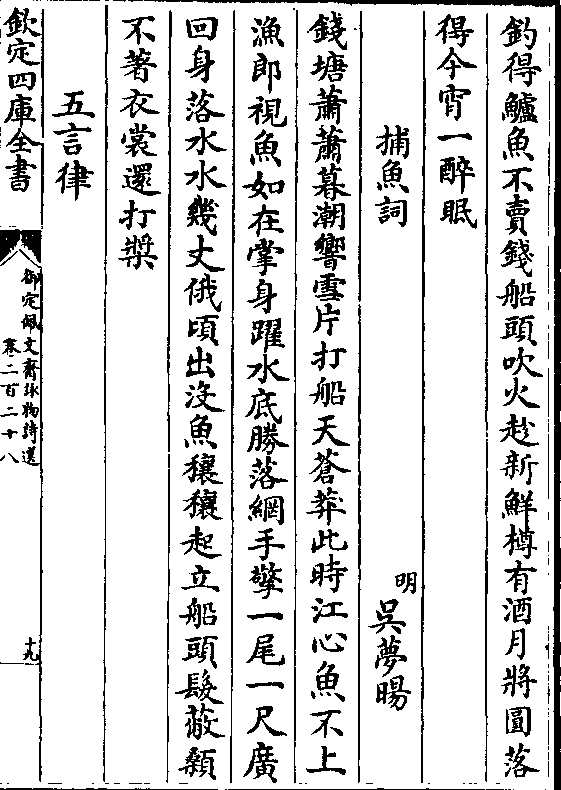 釣得鱸魚不賣錢船頭吹火趂新鮮樽有酒月將圓落
得今宵一醉眠
捕魚詞
明
吳夢暘
錢塘蕭蕭暮潮響雪片打船天蒼莽此時江心魚不上
漁郎視魚如在掌身躍水底勝落網手擎一尾一尺廣
回身落水水幾丈俄頃出沒魚穰穰起立船頭髮蔽顙
不著衣裳還打槳
五言律
欽定四庫全書
御定佩文齋詠物詩選
卷二百二十八
十九